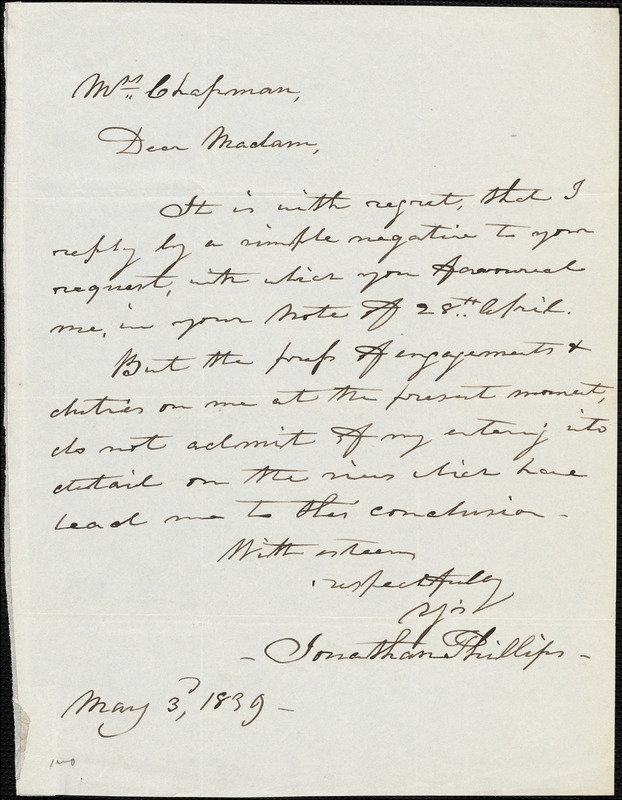 Mrs. Chapman,
Dear Madam,
It is with regret, that I
reply by a simple negative to your
request, with which you favoured
me, in your Note of 28th. April.
But the press of engagements &
duties on me at the present moment,
do not admit of my entering into
detail on the views which have
lead me to this conclusion -
With esteem
respectfully
Yrs
- Jonathan Phillips -
May 3d, 1839 -